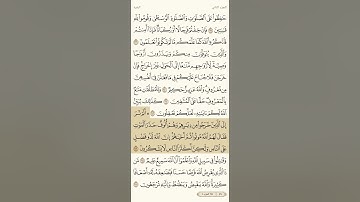 الجزء الثاني البقرة
حَٰفِظُوا۟ عَلَى ٱلصَّلَوَٰتِ وَٱلصَّلَوٰةِ ٱلْوُسْطَىٰ وَقُومُوا۟ لِلَّهِ
قَٰنِتِينَ ٢٣٨ فَإِنْ خِفْتُمْ فَرِجَالًا أَوْ رُكْبَانًا فَإِذَآ أَمِنتُمْ
فَٱذْكُرُوا۟ ٱللَّهَ كَمَا عَلَّمَكُم مَّا لَمْ تَكُونُوا۟ تَعْلَمُونَ ٢٣٩
وَٱلَّذِينَ يُتَوَفَّوْنَ مِنكُمْ وَيَذَرُونَ أَزْوَٰجًا
وَصِيَّةً لِّأَزْوَٰجِهِم مَّتَٰعًا إِلَى ٱلْحَوْلِ غَيْرَ إِخْرَاجٍ فَإِنْ
خَرَجْنَ فَلَا جُنَاحَ عَلَيْكُمْ فِى مَا فَعَلْنَ فِىٓ أَنفُسِهِنَّ
مِن مَّعْرُوفٍ وَٱللَّهُ عَزِيزٌ حَكِيمٌ ٢٤٠ وَلِلْمُطَلَّقَٰتِ مَتَٰعٌۢ
بِٱلْمَعْرُوفِ حَقًّا عَلَى ٱلْمُتَّقِينَ ٢٤١ كَذَٰلِكَ يُبَيِّنُ
ٱللَّهُ لَكُمْ ءَايَٰتِهِۦ لَعَلَّكُمْ تَعْقِلُونَ ٢٤٢ ۞ أَلَمْ تَرَ
إِلَى ٱلَّذِينَ خَرَجُوا۟ مِن دِيَٰرِهِمْ وَهُمْ أُلُوفٌ حَذَرَ ٱلْمَوْتِ
فَقَالَ لَهُمُ ٱللَّهُ مُوتُوا۟ ثُمَّ أَحْيَٰهُمْ إِنَّ ٱللَّهَ لَذُو فَضْلٍ
عَلَى ٱلنَّاسِ وَلَٰكِنَّ أَكْثَرَ ٱلنَّاسِ لَا يَشْكُرُونَ ٢٤٣
وَقَٰتِلُوا۟ فِى سَبِيلِ ٱللَّهِ وَٱعْلَمُوٓا۟ أَنَّ ٱللَّهَ سَمِيعٌ عَلِيمٌ ٢٤٤
مَّن ذَا ٱلَّذِى يُقْرِضُ ٱللَّهَ قَرْضًا حَسَنًا فَيُضَٰعِفَهُۥ لَهُۥٓ أَضْعَافًا
كَثِيرَةً وَٱللَّهُ يَقْبِضُ وَيَبْصُۜطُ وَإِلَيْهِ تُرْجَعُونَ ٢٤٥